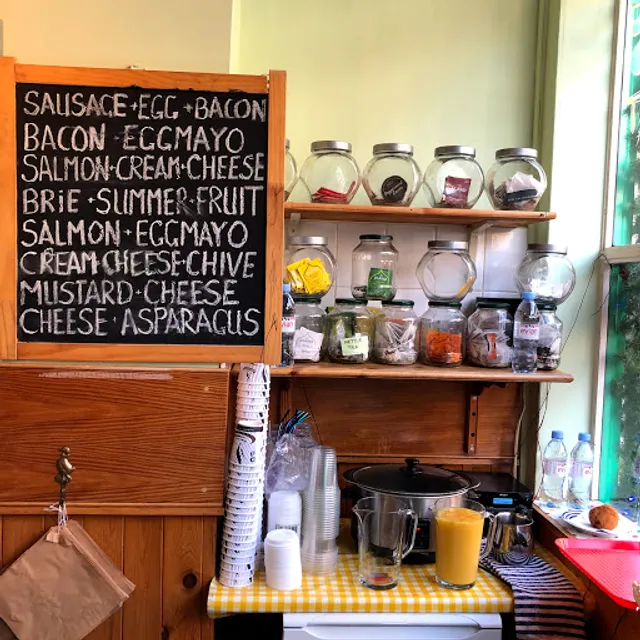 SAUSAGE·EGG·BACON
BACON·EGGMAYO
SALMON·CREAM·CHEESE
BRIE·SUMMER·FRUIT
SALMON·EGGMAYO
CREAM CHEESE·CHIVE
MUSTARD·CHEESE
CHEESE·ASPARAGUS
NETTLE